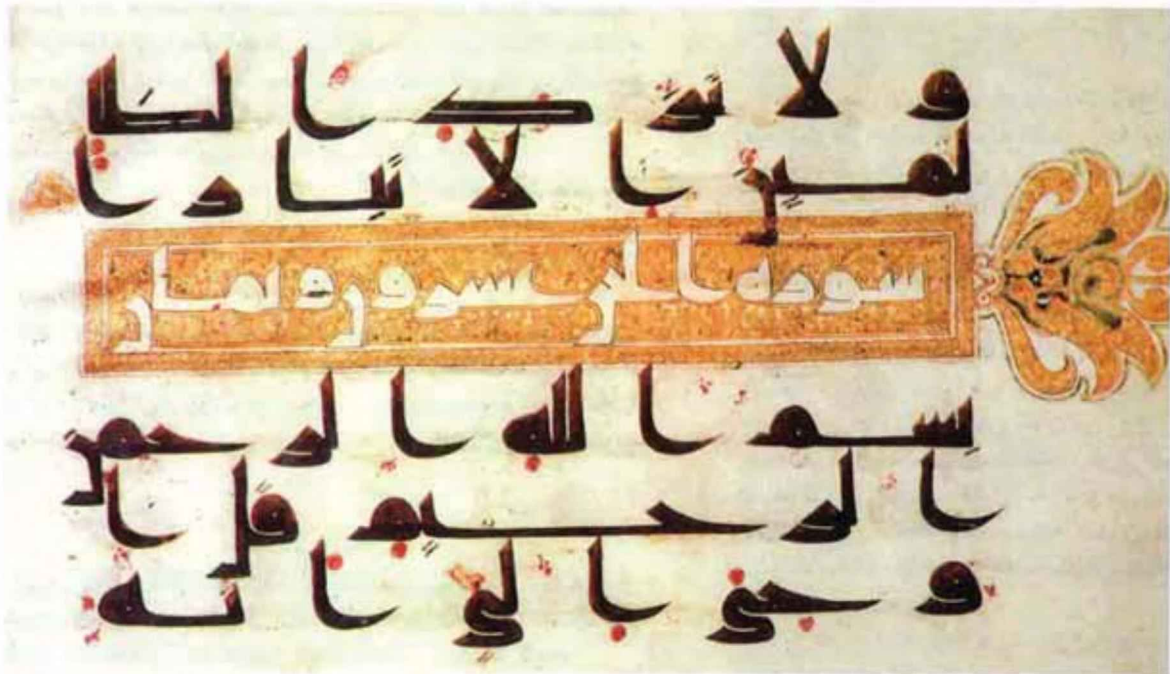 ولا تزد الظا
لمين الا تبارا
سورة الجن عشرون وثمان
بسم الله الرحمن
الرحيم قل ا
وحي الي انه